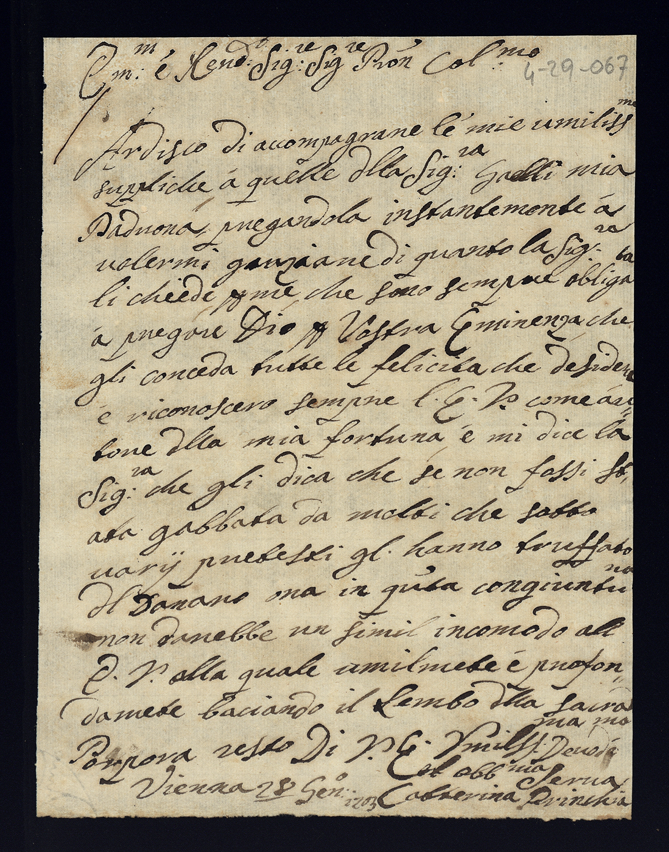 Em:m é Revd:o Sig:re Sig:re Pròn Col:mo
4-29-067
Ardisco di accompagrane le mie umiliss:me
suppliche á quelle dlla Sig:ra Galli mia
Padrona, pregandola instantemente á
volermi graziare di quanto la Sig:ra
li chiede p me, che sono sempre obligata
á pregare Dio p Vostra Eminenza che
gli conceda tutte le felicita che desidera
é riconoscero sempre l'E. V. come au=
tore dlla mia fortuna é mi dice la
Sig:ra che gli dica che se non fossi st,
ata gabbata da molti che sotto
varij pretesti gl'hanno truffato
dl Danaro ma in qusta congiuntura
non darebbe un simil incomodo all
E. V. alla quale umilmete é profon=
damete baciando il Lembo dlla sacra
Porpora resto Di V. E. Vmiliss:ma Devot:ma
et obb:ma Serua
Vienna 28 Gen:o 1703 Catterina